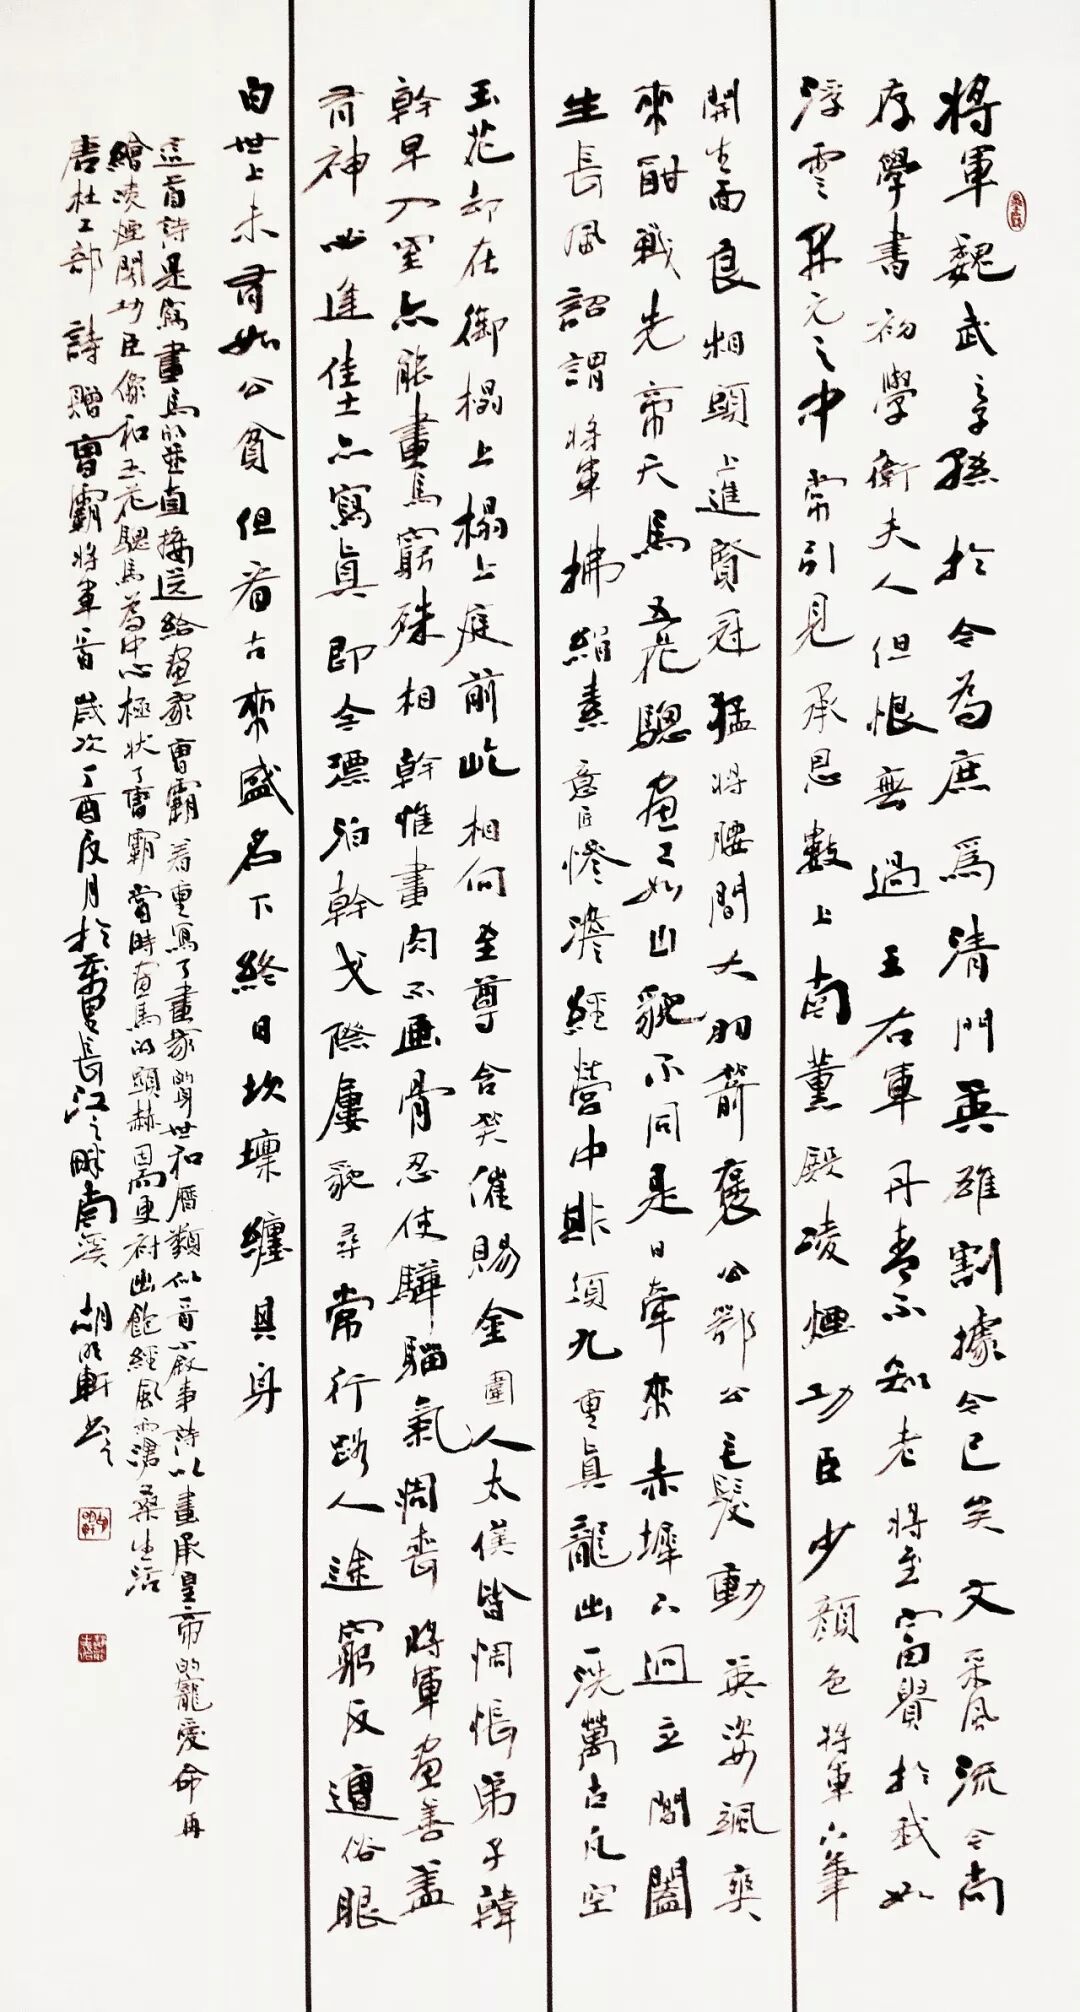 將軍魏武之子孫於今為庶爲清門英雄割據今已矣文采風流今尚
存學書初學衛夫人但恨無過王右軍丹青不知老將至富貴於我如
浮雲開元之中常引見承恩數上南薰殿凌煙功臣少顏色將軍下筆
開生面良相頭上進賢冠猛將腰間大羽箭褒公鄂公毛髮動英姿颯爽
來酣戰先帝天馬五花驄画工如山貌不同是日牽來赤墀下迥立閶闔
生長風詔謂將軍拂絹素意匠慘澹經營中非須九重真龍出一洗萬古凡空
玉花却在御榻上榻上庭前屹相向至尊含笑催賜金圉人太僕皆惆悵弟子韓
幹早入室亦能畫馬窮殊相幹惟畫肉不画骨忍使驊騮氣凋喪將軍画善蓋
有神必逢佳士亦寫真即今漂泊幹戈際屢貌尋常行路人途窮反遭俗眼
白世上未有如公貧但看古來盛名下終日坎壈纏其身
這首詩是寫畫馬的並直接送給画家曹霸着重寫了畫家的身世和曆類似一首小敘事詩以畫承皇帝的寵愛命再
繪凌煙閣功臣像和玉花驄馬為中心極狀了曹霸當時画馬的顯赫因而更襯出飽經風雨滄桑生活
唐杜工部詩贈曹霸將軍一首歲次丁酉反月於萬里長江之畔南溪胡明軒書